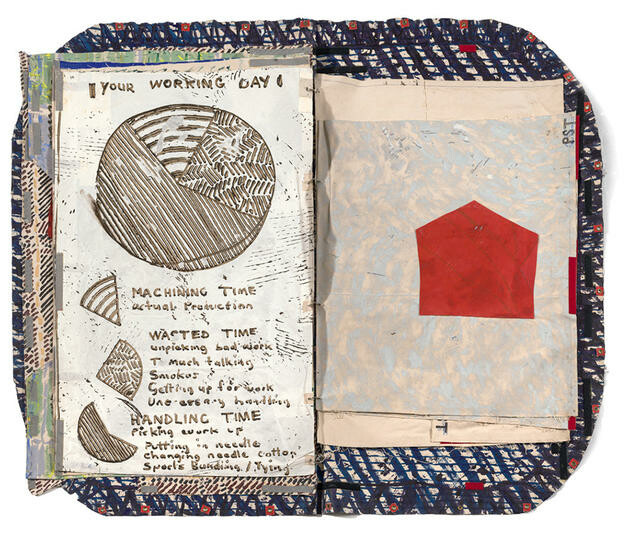 YOUR WORKING DAY
MACHINING TIME
actual Production
WASTED TIME
unpicking bad work
T much talking
Smokos
Getting up for work
handling
HANDLING TIME
Picking work up
Putting in needle
changing needle cotton
Spools Bundling / Tying
PST